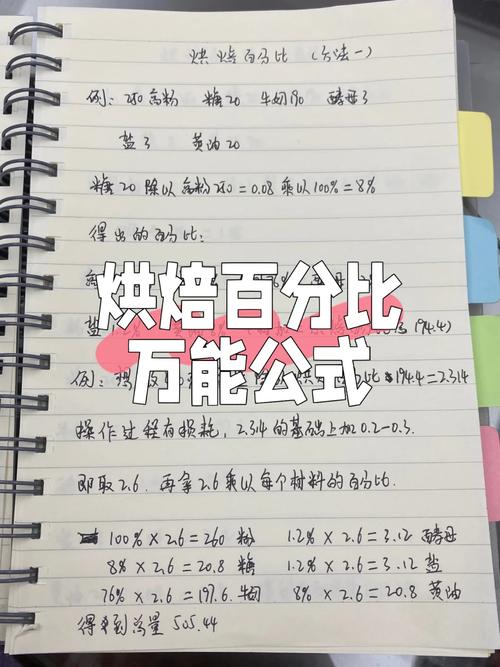 烘焙百分比（方法一）
例：250高粉 糖20 牛奶190 酵母3
盐3 黄油20
糖20除以高粉250=0.08乘以100%=8%
得出的百分比：
烘焙百分比
盐 194.4)
万能公式
例： 比 194.4=2.314
操作过程有损耗，2.314的基础上加0.2-0.3.
即取2.6.再拿2.6乘以每个材料的百分比.
100%×2.6=260 粉 1.2%×2.6=3.12 酵母
8%×2.6=20.8 糖 1.2%×2.6=3.12 盐
76%×2.6=197.6.牛奶 8%×2.6=20.8 黄油
得到总量505.44